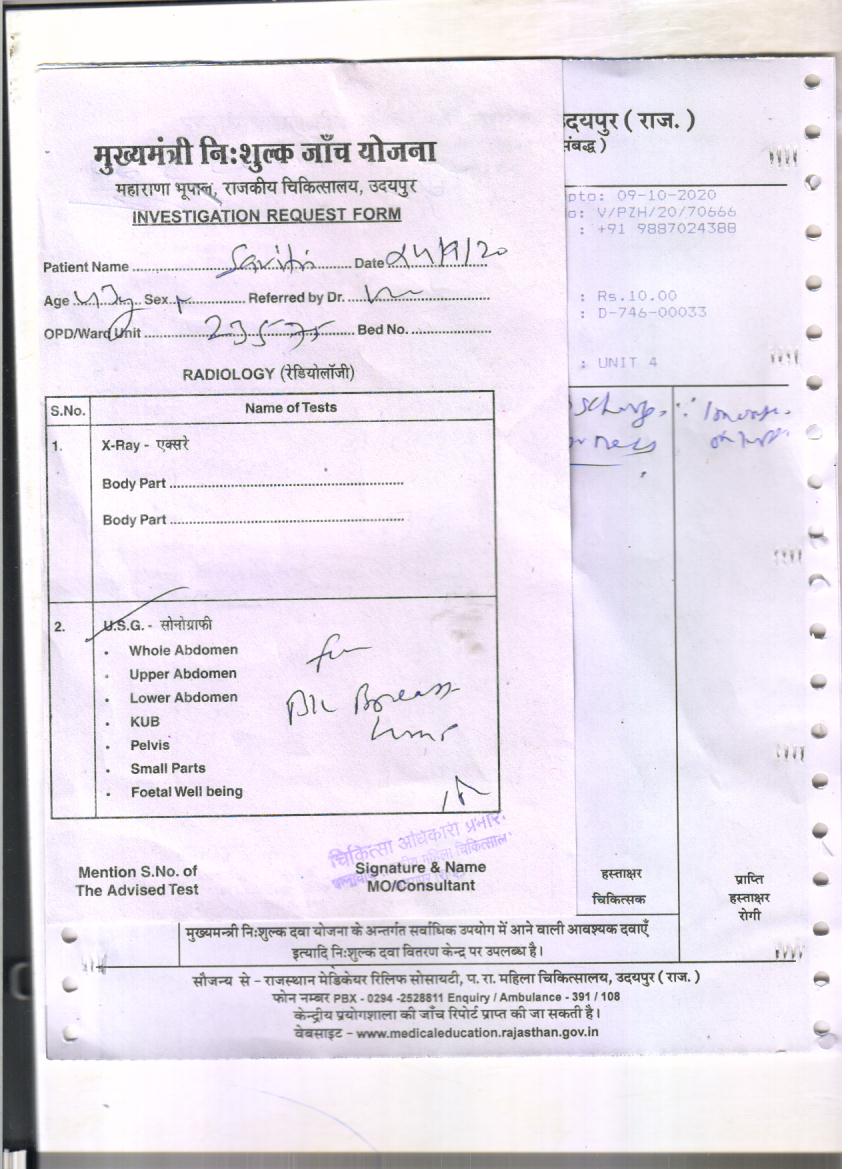 मुख्यमंत्री नि:शुल्क जाँच योजना
महाराणा भूपाल, राजकीय चिकित्सालय, उदयपुर
INVESTIGATION REQUEST FORM
Patient Name Savitri Date 24/9/20
Age Sex F Referred by Dr.
OPD/Ward Unit 23575 Bed No.
RADIOLOGY (रेडियोलॉजी)
S.No. Name of Tests
1. X-Ray - एक्सरे
Body Part
Body Part
2. U.S.G. - सोनोग्राफी
• Whole Abdomen
• Upper Abdomen
• Lower Abdomen
• KUB
• Pelvis
• Small Parts
• Foetal Well being
for
B/L Breast
lump
चिकित्सा अधिकारी प्रभारी
महिला चिकित्सालय
Mention S.No. of
The Advised Test
Signature & Name
MO/Consultant
उदयपुर ( राज. )
संबद्ध )
pto: 09-10-2020
o: V/PZH/20/70666
: +91 9887024388
: Rs.10.00
: D-746-00033
: UNIT 4
हस्ताक्षर
चिकित्सक
प्राप्ति
हस्ताक्षर
रोगी
मुख्यमन्त्री नि:शुल्क दवा योजना के अन्तर्गत सर्वाधिक उपयोग में आने वाली आवश्यक दवाएँ
इत्यादि नि:शुल्क दवा वितरण केन्द्र पर उपलब्ध है।
सौजन्य से – राजस्थान मेडिकेयर रिलिफ सोसायटी, प. रा. महिला चिकित्सालय, उदयपुर ( राज. )
फोन नम्बर PBX - 0294 -2528811 Enquiry / Ambulance - 391 / 108
केन्द्रीय प्रयोगशाला की जाँच रिपोर्ट प्राप्त की जा सकती है।
वेबसाइट – www.medicaleducation.rajasthan.gov.in